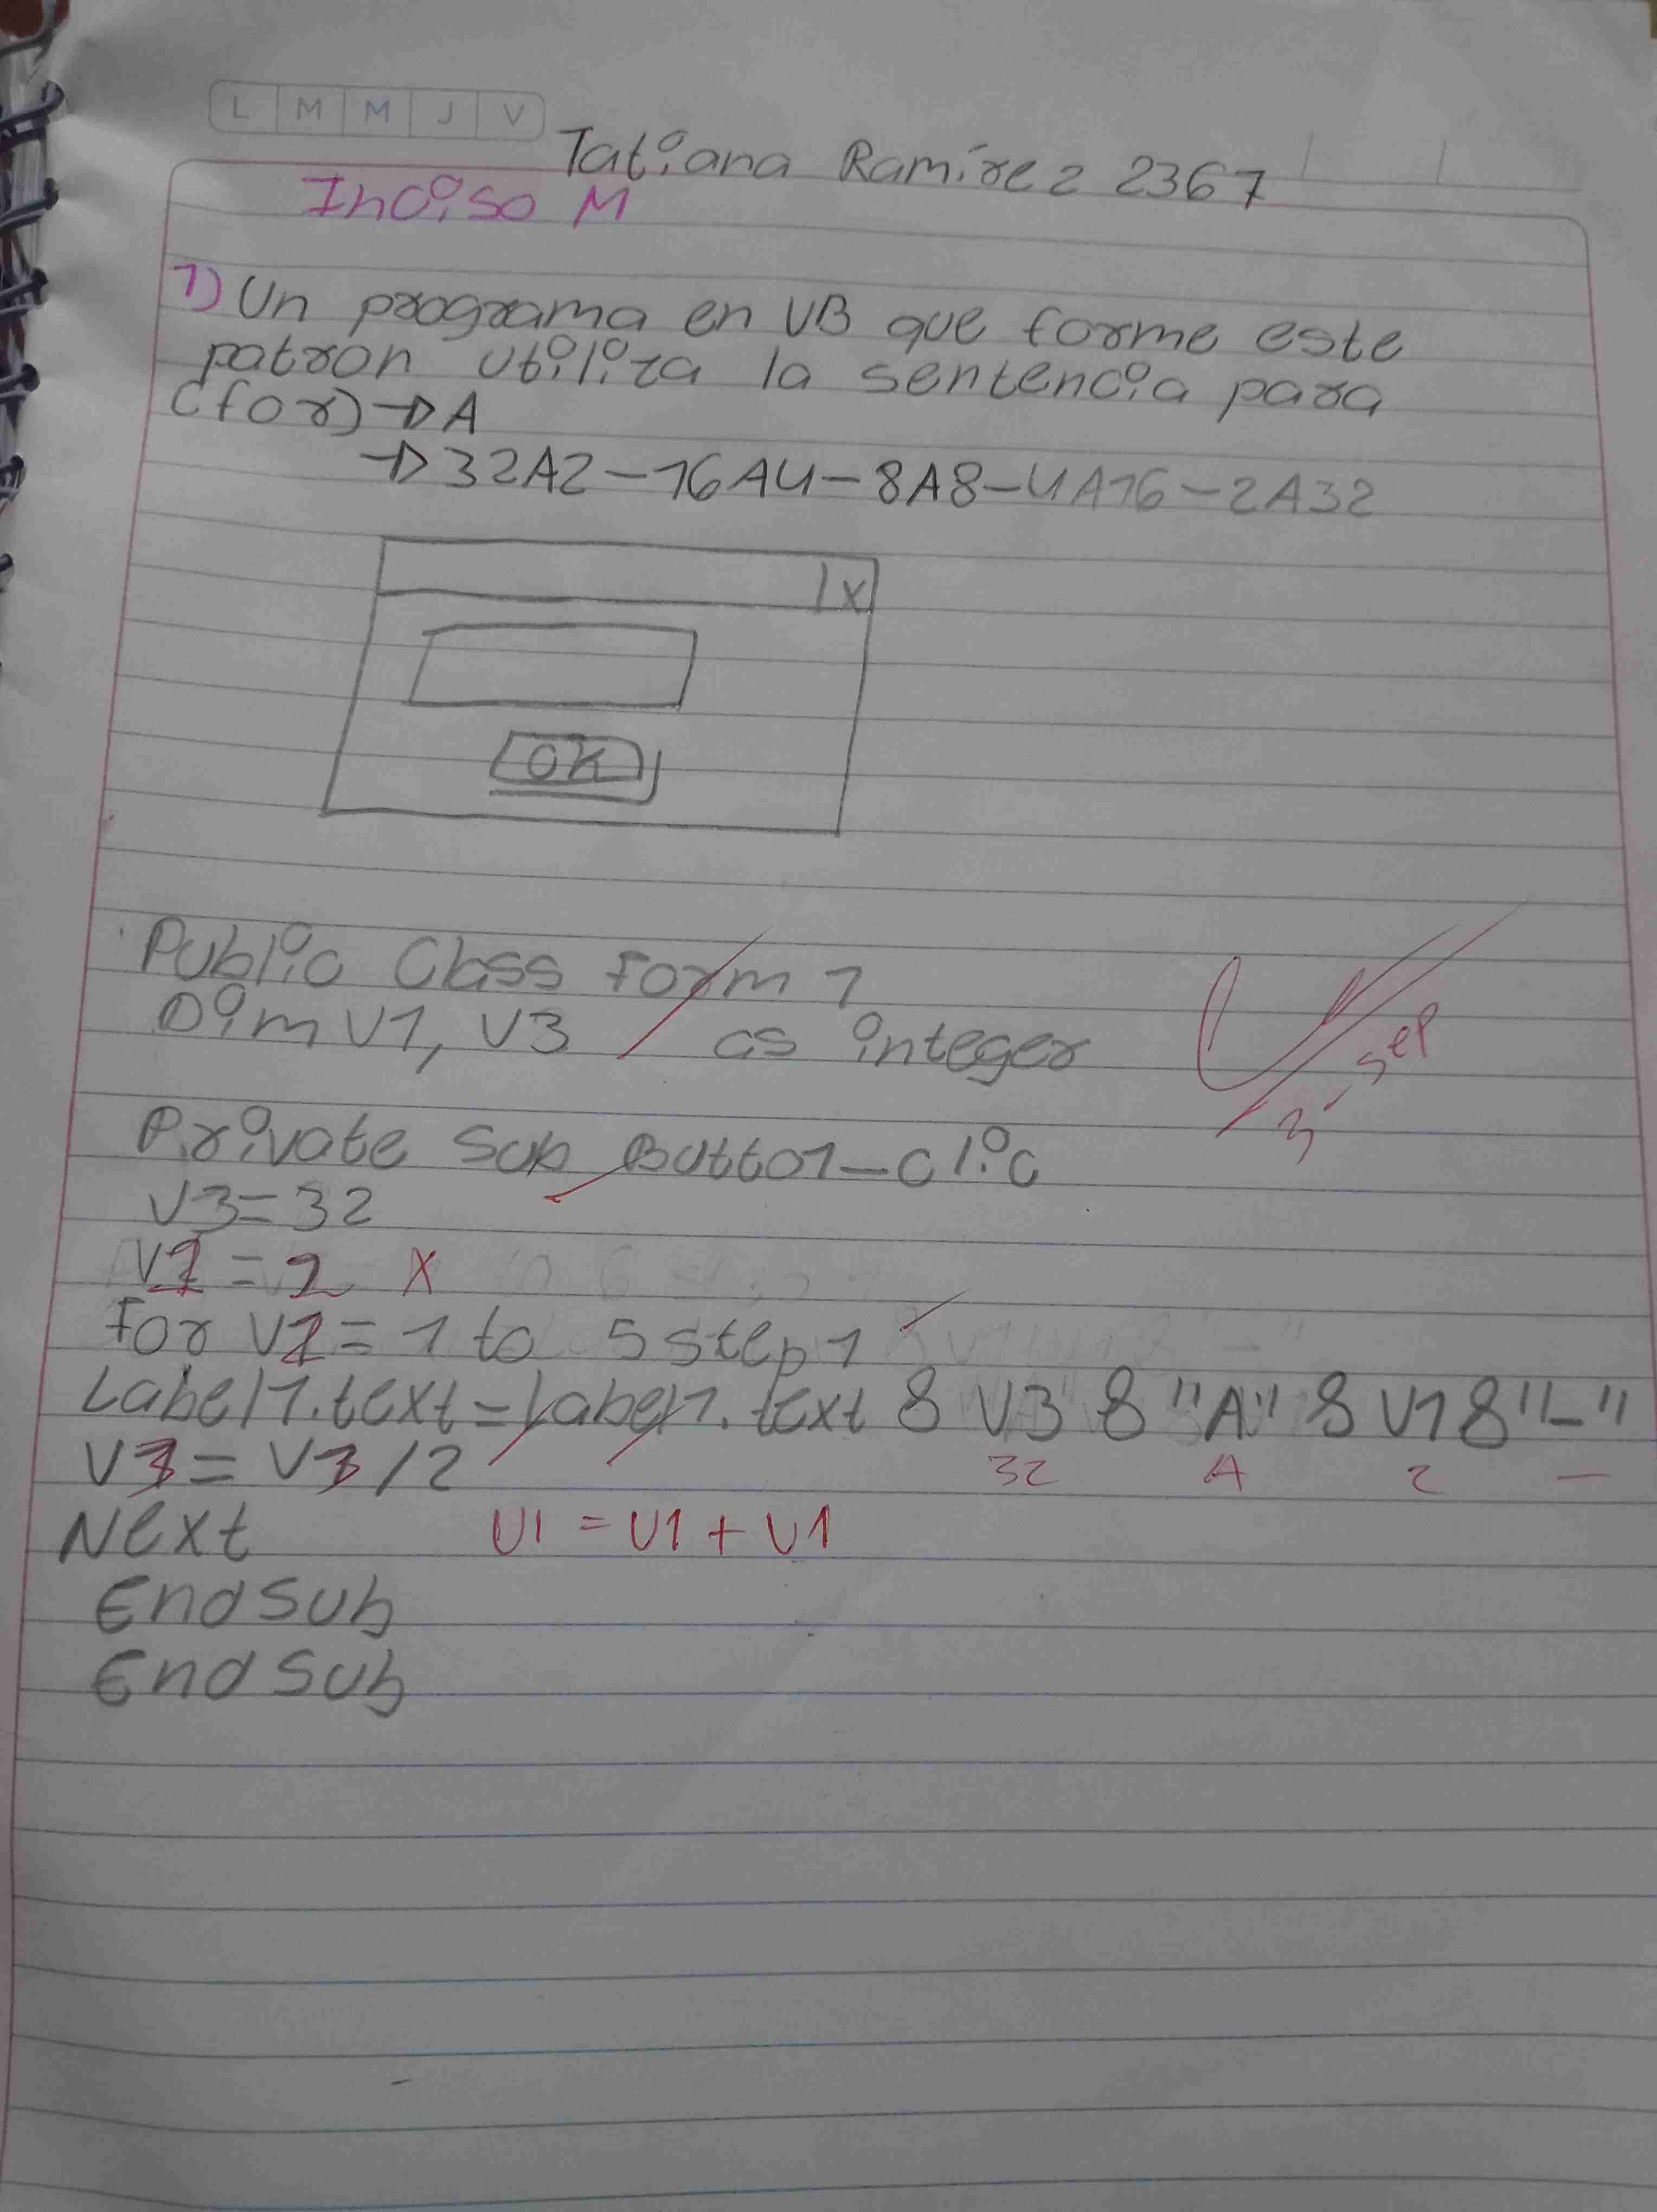 L M M J V
Tatiana Ramírez 2367
Inciso M
1) Un programa en VB que forme este
patron utiliza la sentencia para
(for) → A
→ 32A2 - 16A4 - 8A8 - 4A16 - 2A32
X
OK
Public Class Form 1
Dim V1, V3 as integer
3-sep
Private Sub Button1_clic
V3 = 32
V1 = 2 x
For V2 = 1 to 5 step 1
Label1.text = label1.text & V3 & "A" & V1 & "-"
V3 = V3 / 2
32 A 2 -
Next V1 = V1 + V1
End Sub
End Sub